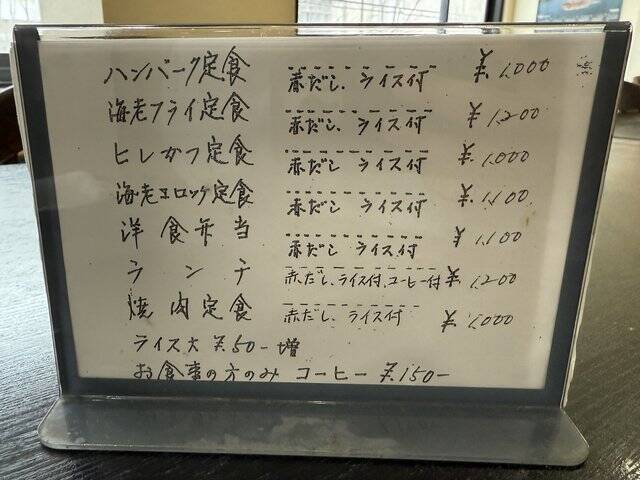 ハンバーグ定食 赤だし、ライス付 ¥1,000
海老フライ定食 赤だし、ライス付 ¥1,200
ヒレかつ定食 赤だし ライス付 ¥1,000
海老コロッケ定食 赤だし ライス付 ¥1,100
洋食弁当 赤だし ライス付 ¥1,100
ランチ 赤だし、ライス付、コーヒー付 ¥1,200
焼肉定食 赤だし、ライス付 ¥1,000
ライス大 ¥50-増
お食事の方のみ コーヒー ¥150-